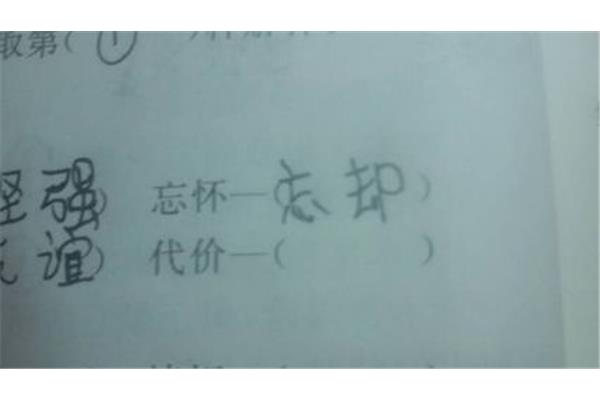 取第(①
强) 忘怀—(忘却)
谊) 代价—( )